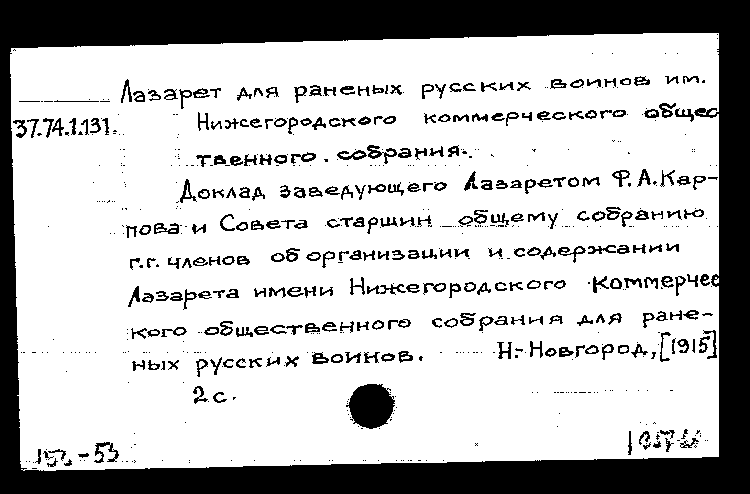 Лазарет для раненых русских воинов им.
37.74.1.131. Нижегородского коммерческого общес
твенного собрания.
Доклад заведующего Лазаретом Ф.А.Кар-
пова и Совета старшин общему собранию
г.г. членов об организации и содержании
Лазарета имени Нижегородского Коммерчес
кого общественного собрания для ране-
ных русских воинов. Н.-Новгород, [1915]
2 с.